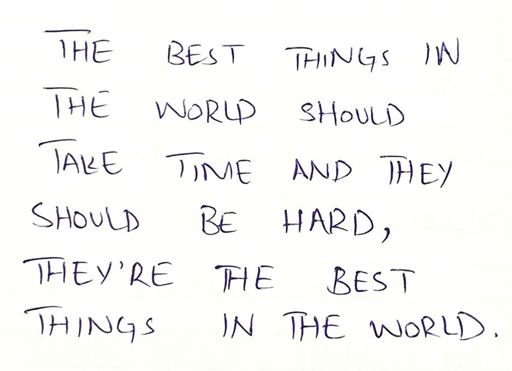 THE BEST THINGS IN
THE WORLD SHOULD
TAKE TIME AND THEY
SHOULD BE HARD,
THEY'RE THE BEST
THINGS IN THE WORLD.